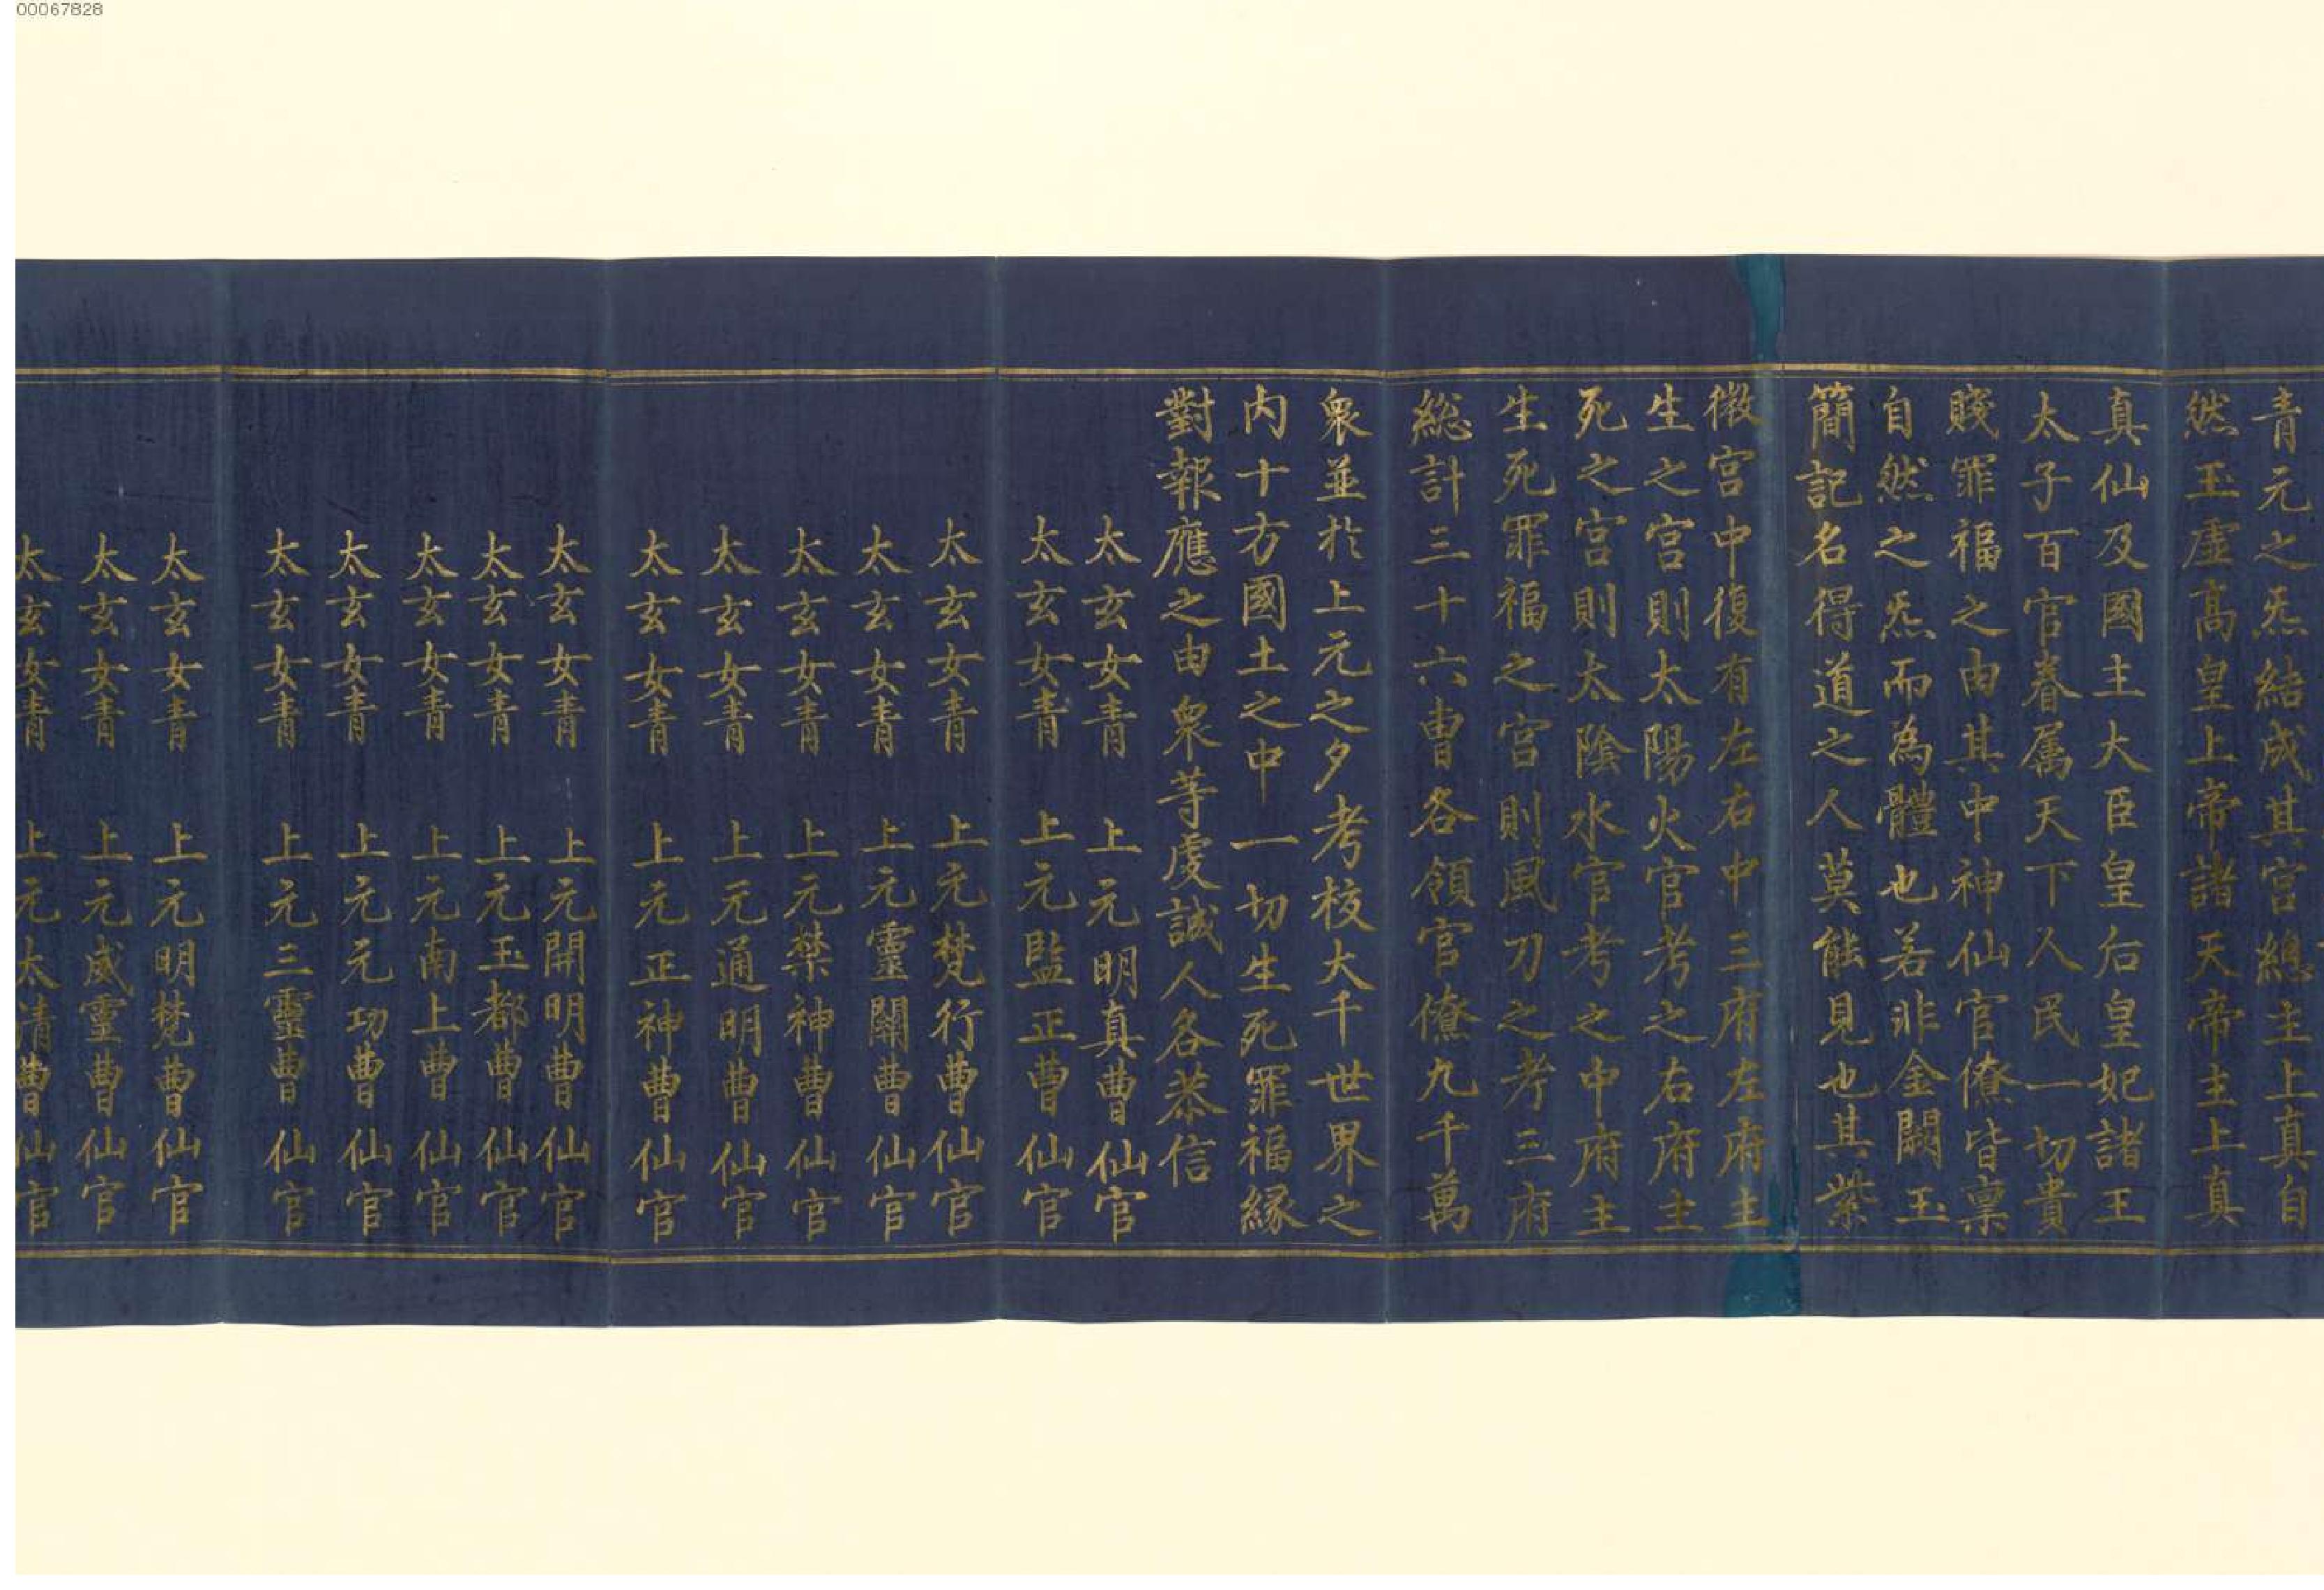 00067828
青元之炁結成其宮總主上真自
然玉虛髙皇上帝諸天帝主上真
真仙及國主大臣皇后皇妃諸王
太子百官眷属天下人民一切貴
賤罪福之由其中神仙官僚皆禀
自然之炁而為體也若非金闕玉
簡記名得道之人莫能見也其紫
微宮中復有左右中三府左府主
生之宮則太陽火官考之右府主
死之宮則太陰水官考之中府主
生死罪福之宮則風刀之考三府
総計三十六曹各領官僚九千萬
衆並於上元之夕考校大千世界之
内十方國土之中一切生死罪福緣
對報應之由衆等虔誠人各恭信
太玄女青 上元明真曹仙官
太玄女青 上元監正曹仙官
太玄女青 上元梵行曹仙官
太玄女青 上元靈關曹仙官
太玄女青 上元禁神曹仙官
太玄女青 上元通明曹仙官
太玄女青 上元正神曹仙官
太玄女青 上元開明曹仙官
太玄女青 上元玉都曹仙官
太玄女青 上元南上曹仙官
太玄女青 上元元功曹仙官
太玄女青 上元三靈曹仙官
太玄女青 上元明梵曹仙官
太玄女青 上元威靈曹仙官
太玄女青 上元太清曹仙官